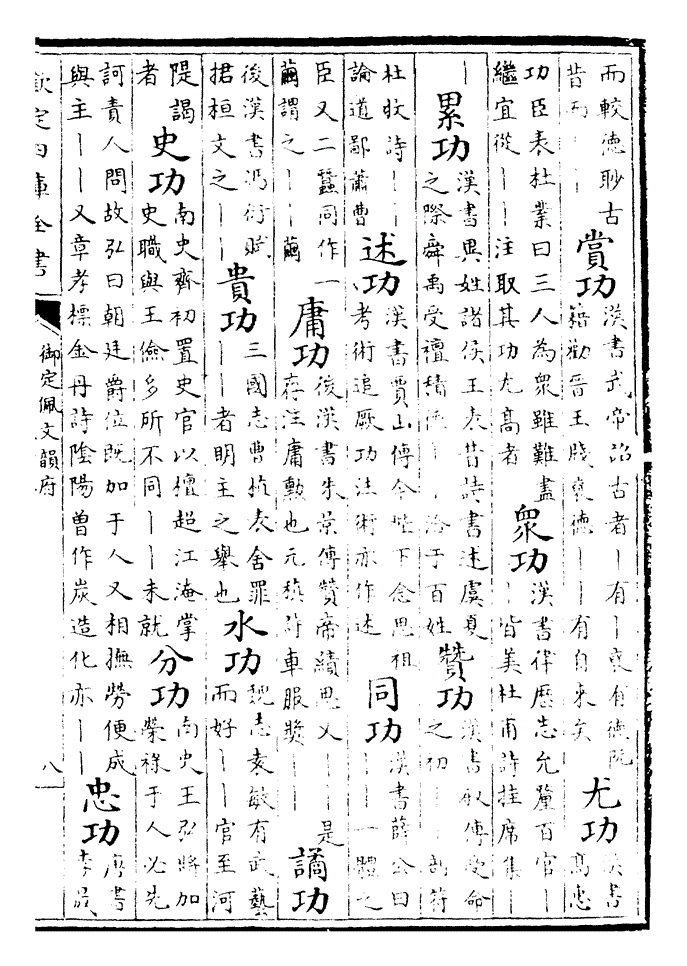 而較德眇古
昔而丨丨
賞功
漢書武帝詔古者丨有丨褒有德阮
籍勸晉王牋褒德丨丨有自來矣
尤功
漢書
高惠
功臣表杜業曰三人為衆雖難盡
繼宜從丨丨注取其功尤高者
衆功
漢書律歷志允釐百官丨
丨皆美杜甫詩挂席集丨
丨
累功
漢書異姓諸侯王表昔詩書述虞夏
之際舜禹受禪積德丨丨洽于百姓
贊功
漢書敘傳受命
之初丨丨剖符
杜牧詩丨丨
論道鄙蕭曹
述功
漢書賈山傳今陛下念思祖
考術追厥功注術亦作述
同功
漢書薛公曰
丨丨一體之
臣又二蠶同作一
繭謂之丨丨繭
庸功
後漢書朱景傳贊帝績思乂丨丨是
存注庸勳也元稹詩車服奬丨丨
譎功
後漢書馮衍賦
捃桓文之丨丨
貴功
三國志曹植表舍罪
丨丨者明主之舉也
水功
魏志袁敏有武藝
而好丨丨官至河
隄謁
者
史功
南史齊初置史官以檀超江淹掌
史職與王儉多所不同丨丨未就
分功
南史王弘將加
榮祿于人必先
訶責人問故弘曰朝廷爵位既加于人又相撫勞便成
與主丨丨又章孝標金丹詩陰陽曾作炭造化亦丨丨
忠功
唐書
李晟
欽定四庫全書
御定佩文韻府
八